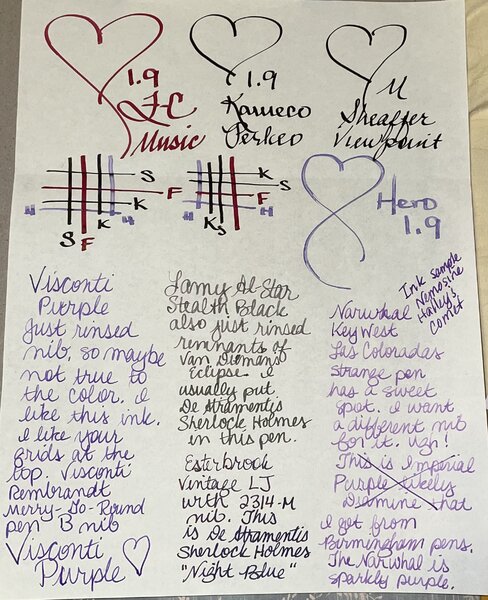 1.9
FC
Music
1.9
Kaweco
Perkeo
M
Sheaffer
Viewpoint
S
F
K
H
H
K
S
F
K
S
F
K
H
H
K
S
Hero
1.9
Visconti
Purple
Just rinsed
nib, so maybe
not true to
the color. I
like this ink.
I like your
grids at the
top. Visconti
Rembrandt
Merry-Go-Round
pen B nib
Visconti
Purple
Lamy Al-Star
Stealth Black
also just rinsed
remnants of
Van Diemans
Eclipse I
usually put
De Atramentis
Sherlock Holmes
in this pen.
Esterbrook
Vintage LJ
with 2314-M
nib. This
is De Atramentis
Sherlock Holmes
"Night Blue"
Ink sample
Nemosine
Halley's
Comet
Narwhal
Key West
Las Coloradas
Strange pen
has a sweet
spot. I want
a different nib
for it. Ugh!
This is Imperial
Purple likely
Diamine that
I got from
Birmingham pens.
The Narwhal is
sparkly purple.